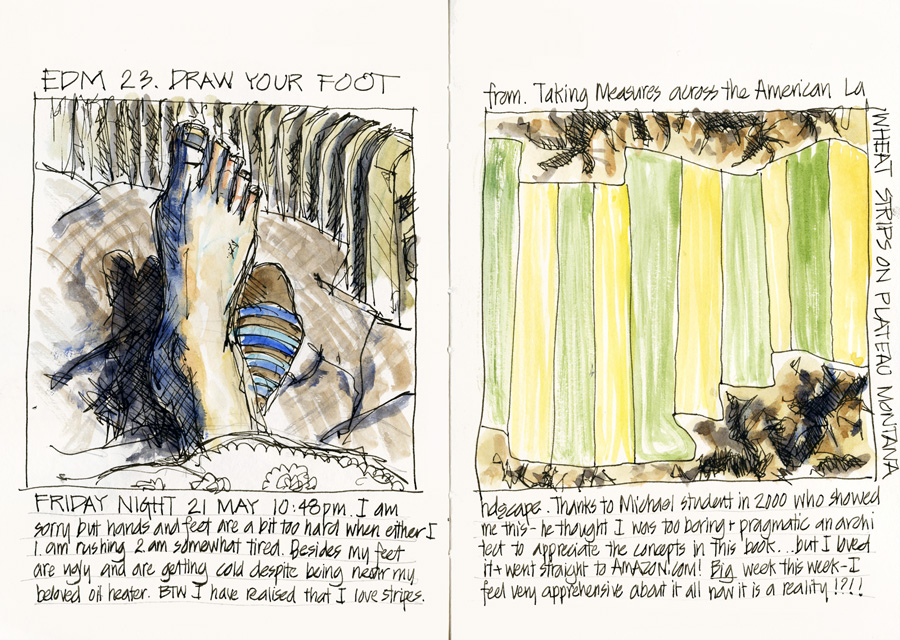 EDM 23. DRAW YOUR FOOT
FRIDAY NIGHT 21 MAY 10:48pm. I am
sorry but hands and feet are a bit too hard when either I
1. am rushing 2 am somewhat tired. Besides my feet
are ugly and are getting cold despite being near my
beloved oil heater. BTW I have realised that I love stripes.
from. Taking Measures across the American La
WHEAT STRIPS ON PLATEAU MONTANA
ndscape. Thanks to Michael student in 2000 who showed
me this - he thought I was too boring + pragmatic an archi
tect to appreciate the concepts in this book...but I loved
it + went straight to AMAZON.com! Big week this week - I
feel very apprehensive about it all now it is a reality !?!!